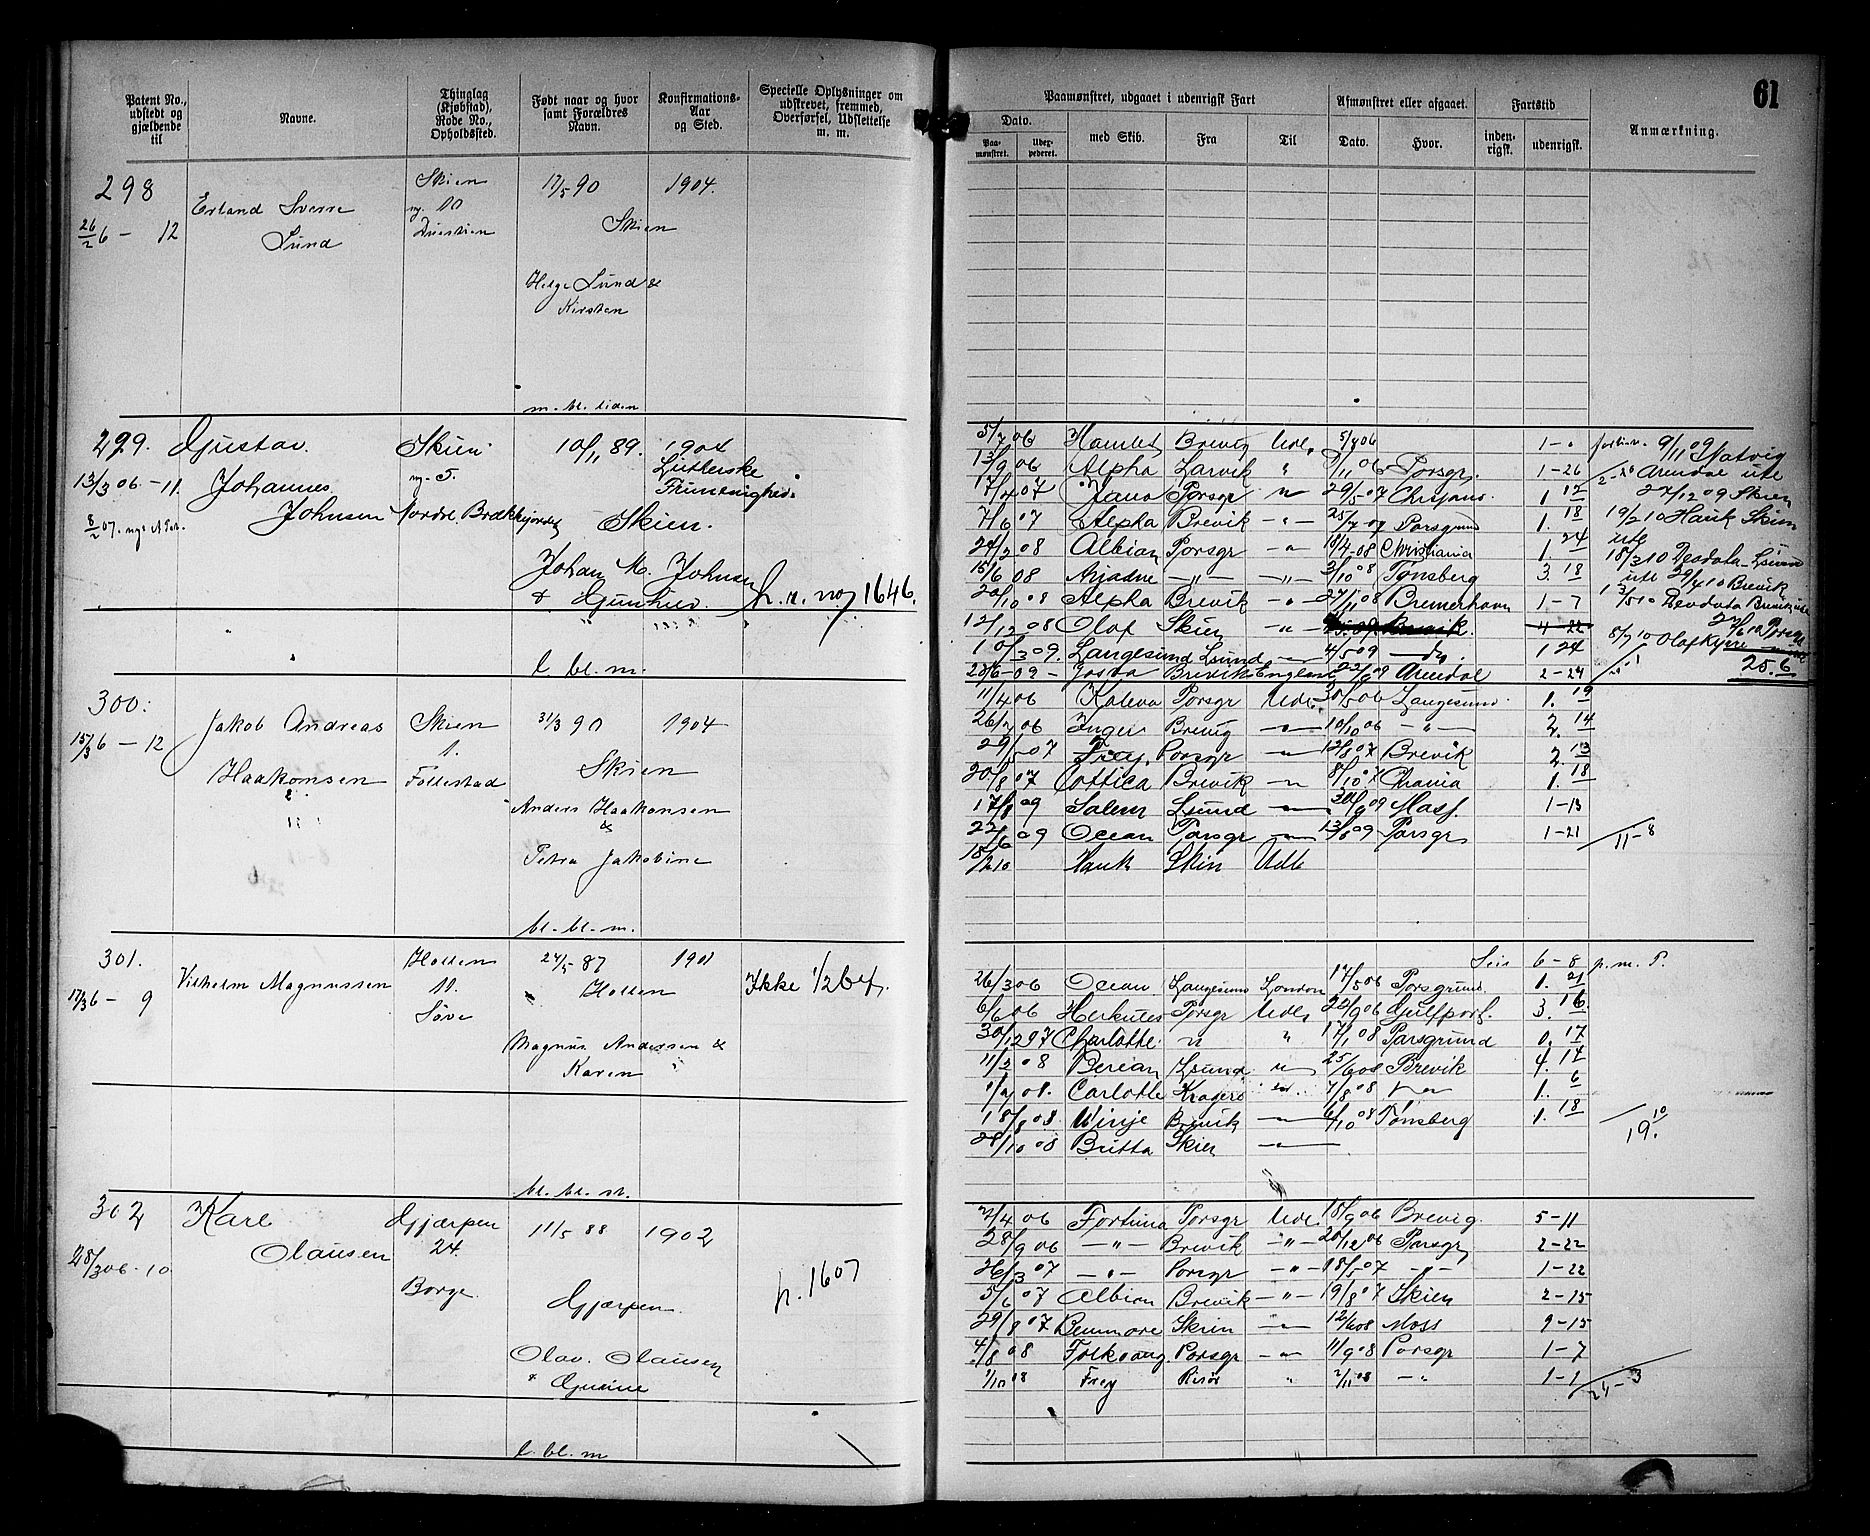 61
Patent No.,
udstedt og
gjældende
til
Navne.
Thinglag
(Kjøbstad),
Rode No.,
Opholdssted.
Født naar og hvor
samt Forældres
Navn.
Konfirmations-
Aar
og Sted.
Specielle Oplysninger om
udskrevet, fremmed,
Overførsel, Udslettelse
m. m.
Paamønstret, udgaaet i udenrigsk Fart
Dato.
Paa-
mønstret.
med Skib.
Fra
Til
Afmønstret eller afgaaet.
Dato.
Hvor.
Fartstid
inden-
rigsk.
udenrigsk.
Anmærkning.
298
26/2 6 - 12
Erland Sverre
Lund
Skien
10
17/5 90
Skien
Helge Lund &
Kirsten
1904.
m. bl. liden
299.
13/3 06 - 11.
Gustav
Johannes
Johnsen
Skien
5.
Nordre
10/11 89.
Skien.
Johan M. Johnsen
1904
Lutherske
h. n. no 1646.
l bl. m.
5/7 06 Hamlet Brevig Udl. 5/8 06 1-0
13/9 06 Alpha Larvik " 9/11 06 Porsgr. 1-26
17/4 07 Jana Porsgr " 29/5 07 Chrjans. 1 12
7/6 07 Alpha Brevik - " - 25/7 07 Porsgrund 1. 18
24/2 08 Albian Porsgr - " - 18/4-08 Christiania 1 24
15/6 08 Ariadne - " - - " - 3/10 08 Tønsberg 3. 18
20/10 08 Alpha Brevik - " - 27/11 08 Bremerhavn 1-7
12/12 08 Olaf Skien - " - Brevik. 4-22
10/3 09. Langesund Lsund - " - 4/5 09 1 24
20/6-09 - Brevik England 22/8 09 Arendal 2-24
9/11 09
Arendal ute
27/12 09 Skien
19/2 10 Hauk Skien
ute
18/3 10 Deodata Lsund
ute 29/4 10 Brevik
13/5 10 Deodata Brevik
8/7 10 Olaf Kyrre
25.6
300.
15/3 6 - 12
Jakob Andreas
Haakonsen
Skien
1.
Follestad
31/3 90
Skien
Anders Haakonsen
&
Petra Jakobine
1904
bl. bl. m.
11/4 06 Kaleva Porsgr Udl. 30/5 06 Langesund. 1. 19
26/7 06 Inger Brevig - " - 10/10 06 - " - 2. 14
29/5 07 Frey Porsgr - " - 12/8 07 Brevik 2. 13
20/8 07 Cottica Brevik - " - 8/10 07 Chrania 1. 18
17/8 09 Salem Lsund - " - 30/9 09 Moss. 1-13
22/6 09 Ocean Porsgr - " - 13/8 09 Porsgr 1-21
11-8
18/2 10 Hauk Skien Udl
301.
17/3 6 - 9
Vilhelm Magnussen
Holden
10.
Søve
24/5 87
Holden
Magnus Andersen &
Karen
1901
Ikke 1/264.
bl. bl. st.
6-8 p. m. P.
26/3 06 Ocean Langesund London 17/5 06 Porsgrund. 1. 21
6/6 06 Herkules Porsgr Udl. 22/9 06 Gulfport. 3. 16
30/12 07 Charlotte " " 17/1 08 Porsgrund 0. 17
11/2 08 Berian Lsund " 25/6 08 Brevik 4. 14
1/7 08. Carlotte Kragerø " 7/8 08 - " - 1. 6
18/8 08 Winje Brevik - " - 6/10 08 Tønsberg 1. 18
28/10 08 Britta Skien - " -
19. 10
302
28/3 06 - 10
Karl
Olausen
Gjærpen
24.
Borge.
11/5 88
Gjærpen.
Olav. Olausen
& Gurine
1902
h. 1607
l. bl. m
2/4 06 Fortuna Porsgr Udl. 18/9 06 Brevig. 5-11
28/9 06 - " - Brevik - " - 20/12 06 Porsgr 2-22
26/3 07 - " - Porsgr - " - 18/5 07 - " - 1-22
5/6 07 Albion Brevik - " - 19/8 07 Skien 2-15
29/8 07 Benmore Skien - " - 12/6 08 Moss 9-15
4/8 08 Folkvang. Porsgr - " - 11/9 08 Porsgr 1-7
1/10 08 Frey Risør " 2/11 08 - " - 1-1
24-3